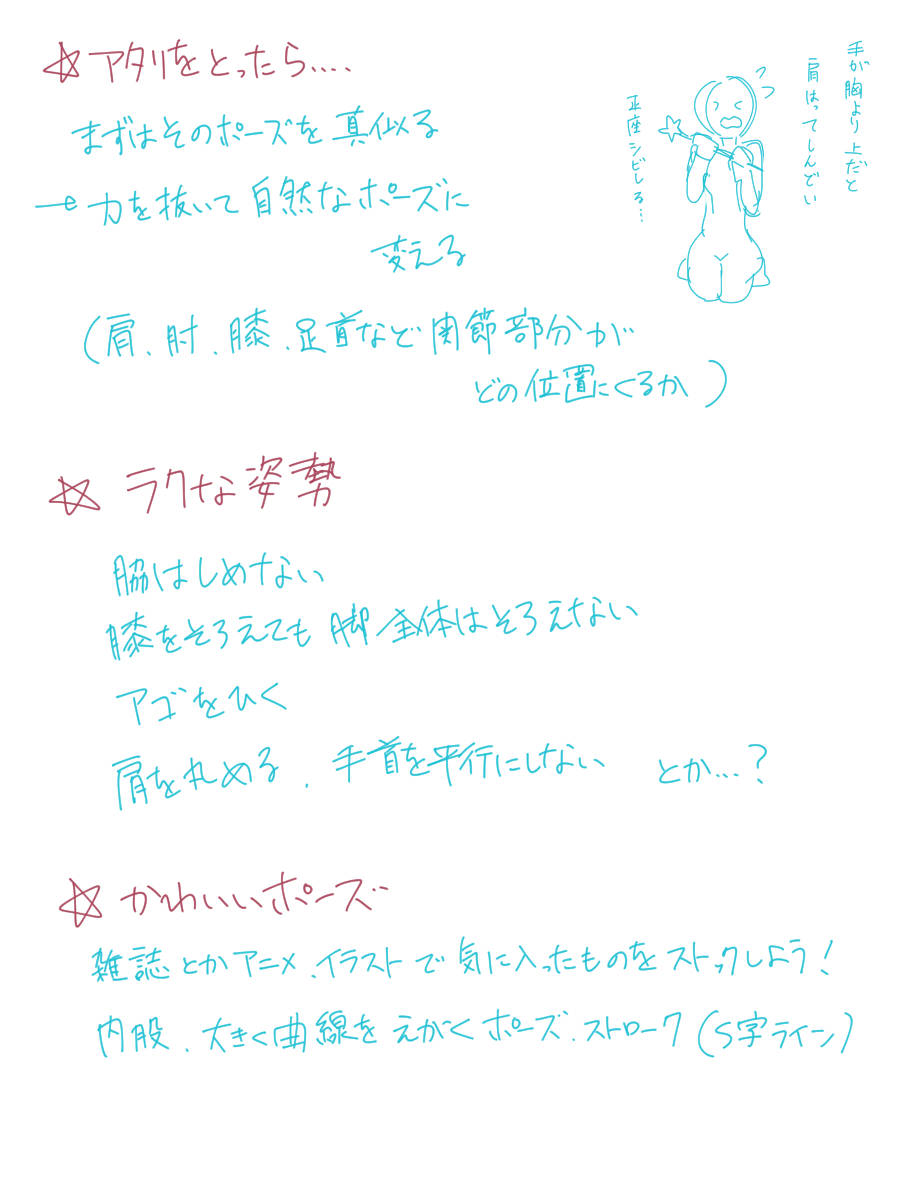 ☆アタリをとったら....
まずはそのポーズを真似る
→力を抜いて自然なポーズに
変える
(肩、肘、膝、足首など関節部分が
どの位置にくるか)
手が胸より上だと
肩はってしんどい
正座シビレる...
☆ラクな姿勢
脇はしめない
膝をそろえても脚全体はそろえない
アゴをひく
肩を丸める、手首を平行にしない とか...?
☆かわいいポーズ
雑誌とかアニメ、イラストで気に入ったものをストックしよう!
内股、大きく曲線をえがくポーズ、ストローク(S字ライン)